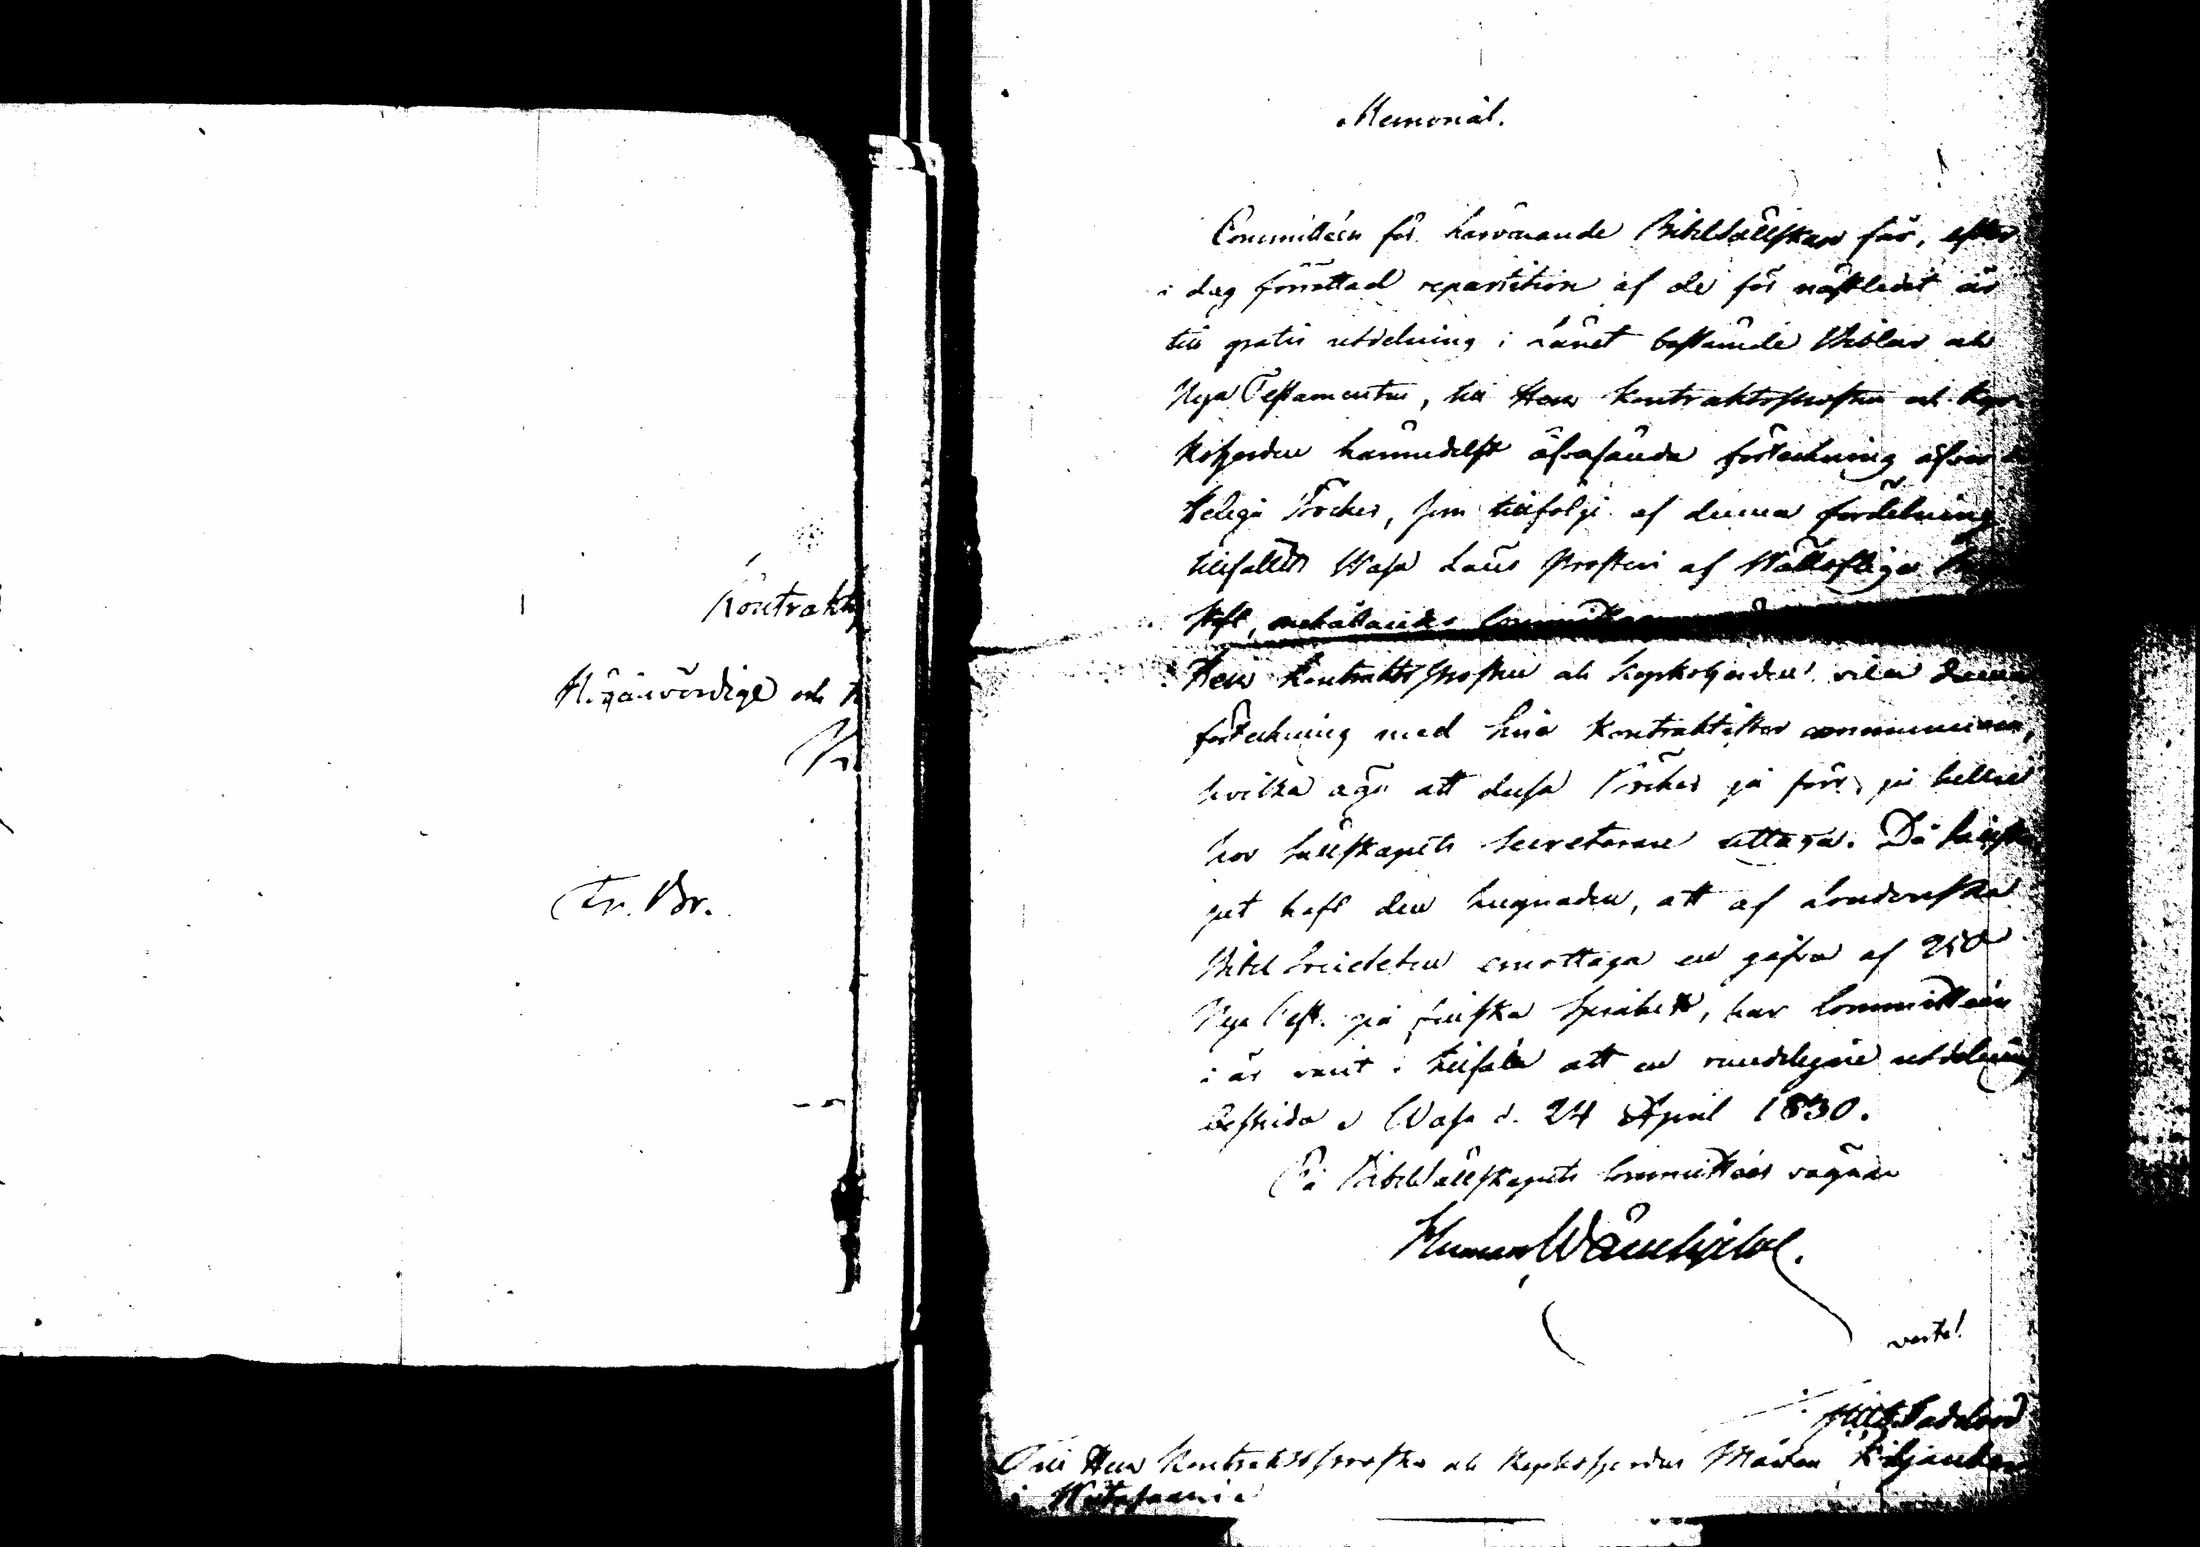 Kontrakts
Högärevördige och
Fr. Br.
Memorial.
Committéen för härvarande Bibelsällskap får, efter
i dag förrättad repartition af de för nästledet år
till gratis utdelning i Länet bestämde Biblar och
Nya Testamenter, till Herr Kontraktsprosten och Kyrko
koherden härmedelst öfversända förteckning öfver
Heliga Böcker, som tillfölje af denna fördelning
tillfallit Wasa Läns Prosteri af
skft, anhållandes Committeen
Herr Kontraktsprosten och Kyrkoherden ville denna
förteckning med sina Kontraktister communicera,
hvilka äga att dessa Böcker ju förr, ju hellre
hos Sällskapets Secreterare uttaga. Då Sällska
pet haft den hugnaden, att af Londonska
Bibel Societeten emottaga en gåfva af 250
Nya Test. på finska Språket, har Committéen
i år varit i tillfälle att en rundeligare utdelning
bestrida. Wasa d. 24 April 1830.
På Bibelsällskapets Committées vägnar
Herman Wänchjelm.
verte!
Till Herr Kontraktsprosten och Kyrkoherden
i